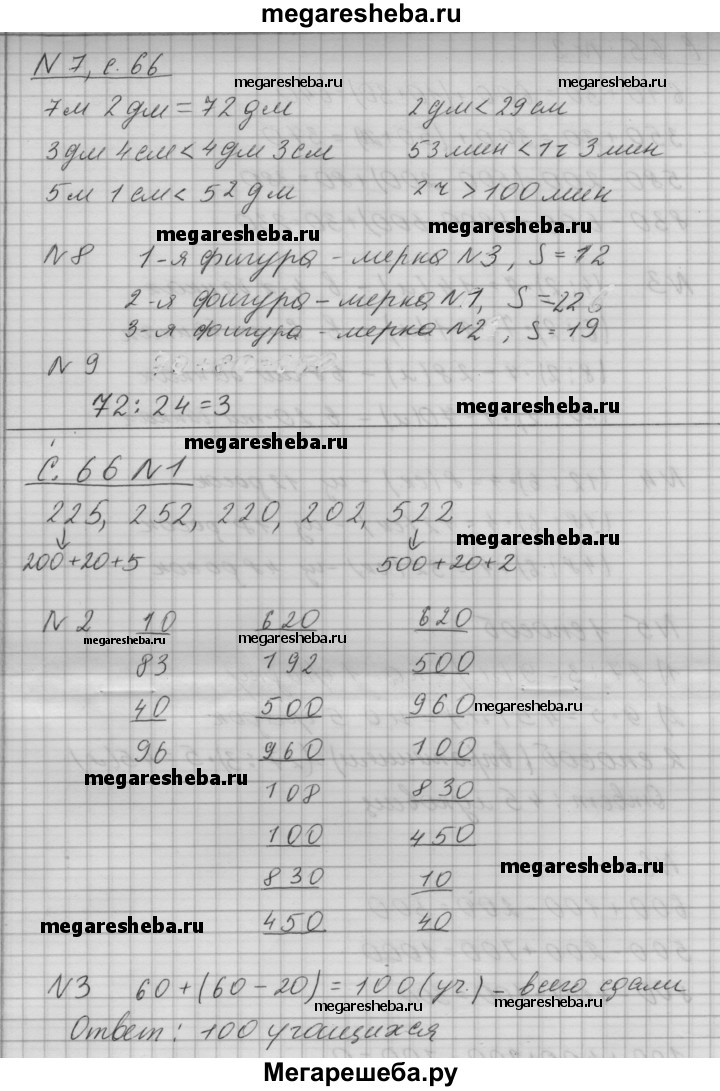 megaresheba.ru
N 7, с. 66
megaresheba.ru megaresheba.ru
7м 2 дм = 72 дм 2дм < 29 см
3 дм 4 см < 4 дм 3 см 53 мин < 1 ч 3 мин
5 м 1 см < 52 дм 2 ч > 100 мин
megaresheba.ru megaresheba.ru
N 8 1-я фигура - мерка N3, S = 12
2-я фигура - мерка N1, S = 22
3-я фигура - мерка N2, S = 19
N 9
72 : 24 = 3
megaresheba.ru
megaresheba.ru
С. 66 N1
225, 252, 220, 202, 522
megaresheba.ru
200+20+5 500+20+2
N 2 10 620 620
megaresheba.ru megaresheba.ru
83 192 500
40 500 960
megaresheba.ru
96 960 100
megaresheba.ru
108 830
100 450
830 10
megaresheba.ru
450 40
megaresheba.ru
N3 60 + (60 - 20) = 100 (уч.) - всего сдали
megaresheba.ru megaresheba.ru
Ответ: 100 учащихся
Мегарешеба.ру